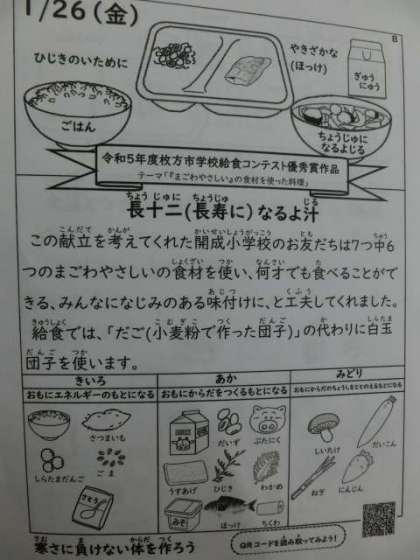 1/26(金)
B
ひじきのいために
やきざかな
(ほっけ)
ぎゅう
にゅう
ごはん
ちょうじゅに
なるよじる
令和5年度枚方市学校給食コンテスト優秀賞作品
テーマ「『まごわやさしい』の食材を使った料理」
長十二(長寿に)なるよ汁
この献立を考えてくれた開成小学校のお友だちは7つ中6
つのまごわやさしいの食材を使い、何才でも食べることがで
きる、みんなになじみのある味付けに、と工夫してくれました。
給食では、「だご(小麦粉で作った団子)」の代わりに白玉
団子を使います。
きいろ
おもにエネルギーのもとになる
さつまいも
しらたまだんご
ごま
さとう
あか
おもにからだをつくるもとになる
だいず
ぶたにく
うすあげ
ひじき
わかめ
みそ
ほっけ
ちくわ
みどり
おもにからだのちょうしをととのえるもとになる
しいたけ
だいこん
ねぎ
にんじん
寒さに負けない体を作ろう
QRコードを読み取ってみよう!